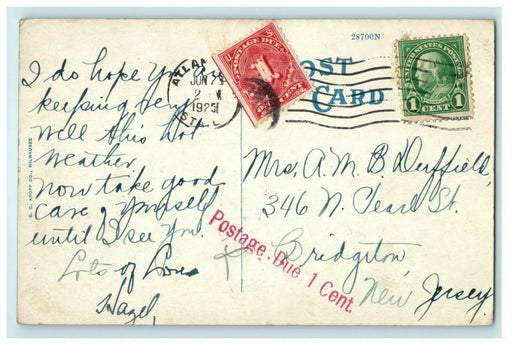 28700N
POST
CARD
POSTAGE DUE
1
ONE CENT
UNITED STATES POSTAGE
1 CENT 1
ATLAN
JUN 7
2
1925
I do hope you are
keeping very
well this hot
weather.
now take good
care of yourself
until I see you.
Lots of Love
Hazel,
E. C. KROPP CO., MILWAUKEE
Mrs. A. M. B. Duffield,
346 N. Pearl St.
Bridgeton,
New Jersey
Postage Due 1 Cent.